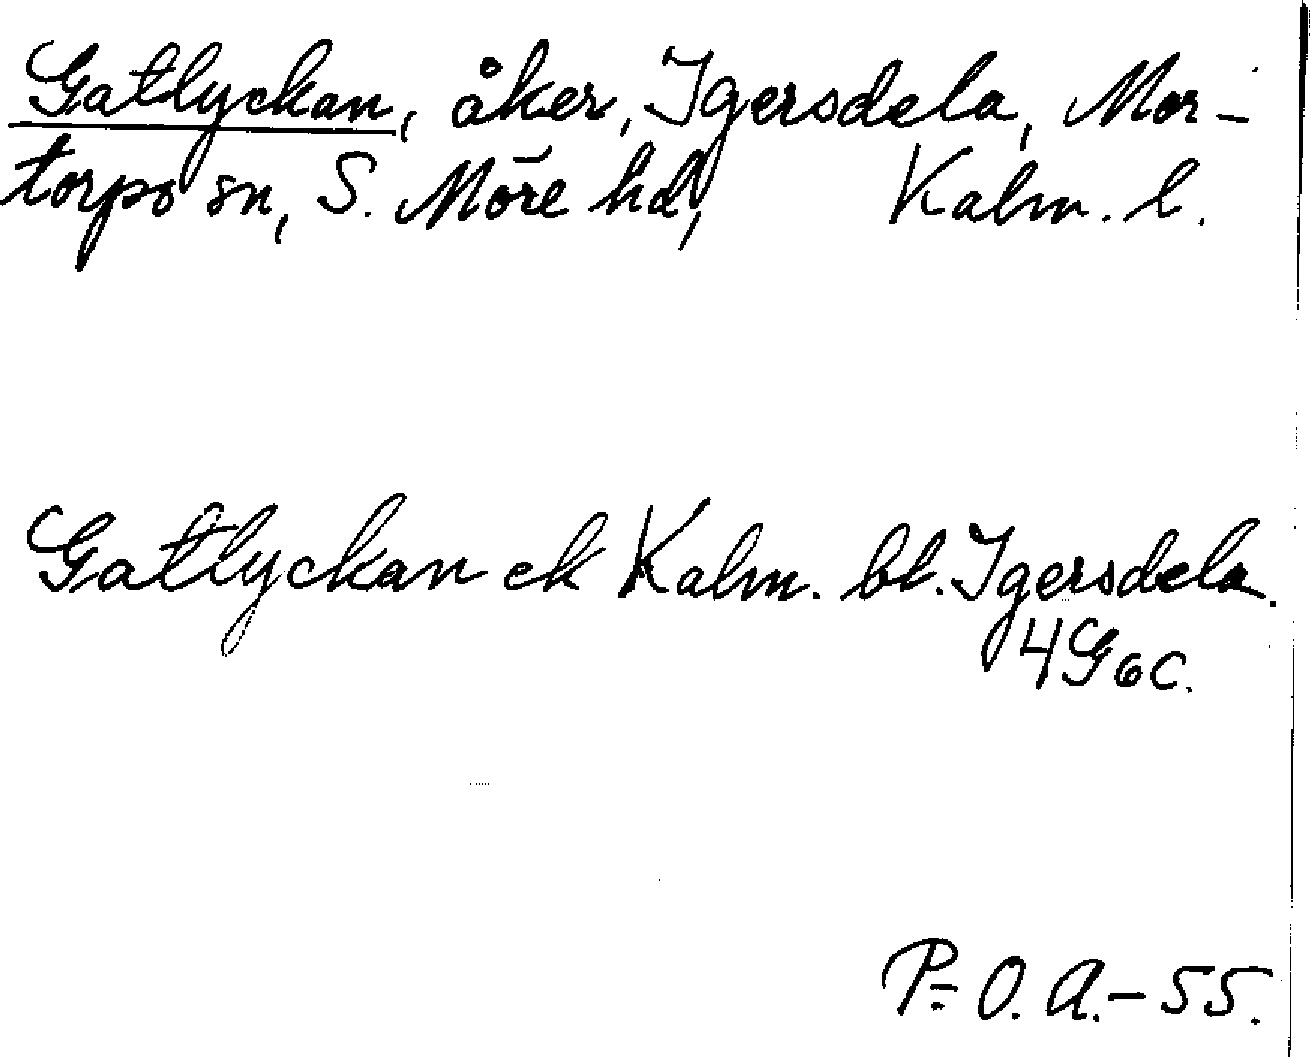 Gatlyckan, åker, Igersdela, Mor-
torps sn, S. Möre hd, Kalm. l.
Gatlyckan ek Kalm. bl. Igersdela.
4G6c.
P-O.A.-55.